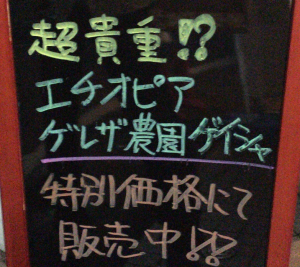 超貴重!?
エチオピア
ゲレザ農園ゲイシャ
特別価格にて
販売中!!